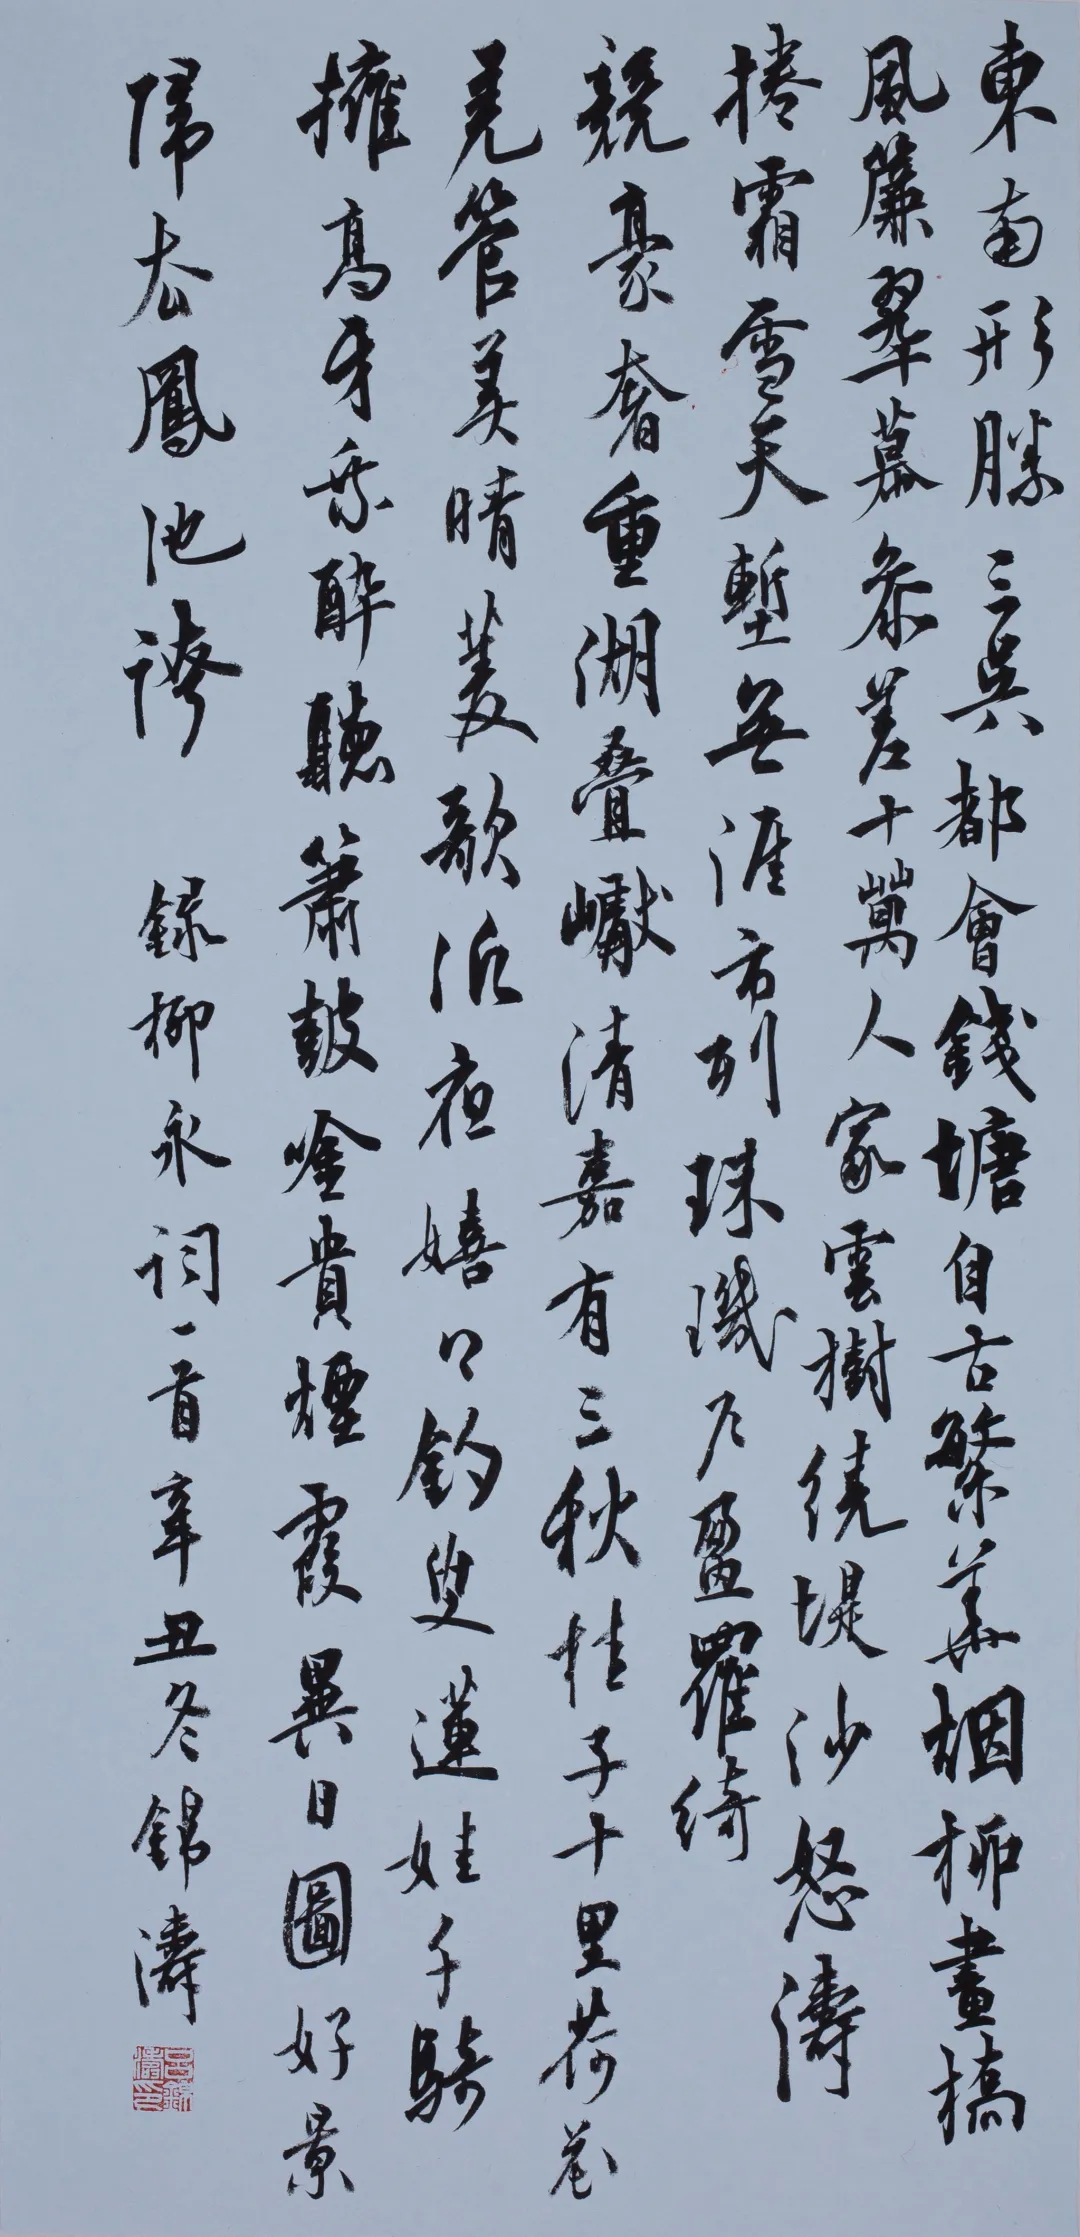 東南形勝三吳都會錢塘自古繁華烟柳畫橋
風簾翠幕參差十萬人家雲樹繞堤沙怒濤
捲霜雪天塹無涯市列珠璣户盈羅綺
競豪奢重湖疊巘清嘉有三秋桂子十里荷花
羌管弄晴菱歌泛夜嬉嬉釣叟蓮娃千騎
擁高牙乘醉聽簫鼓吟賞煙霞異日圖好景
歸去鳳池誇 錄柳永詞一首辛丑冬錦濤
呂錦濤印